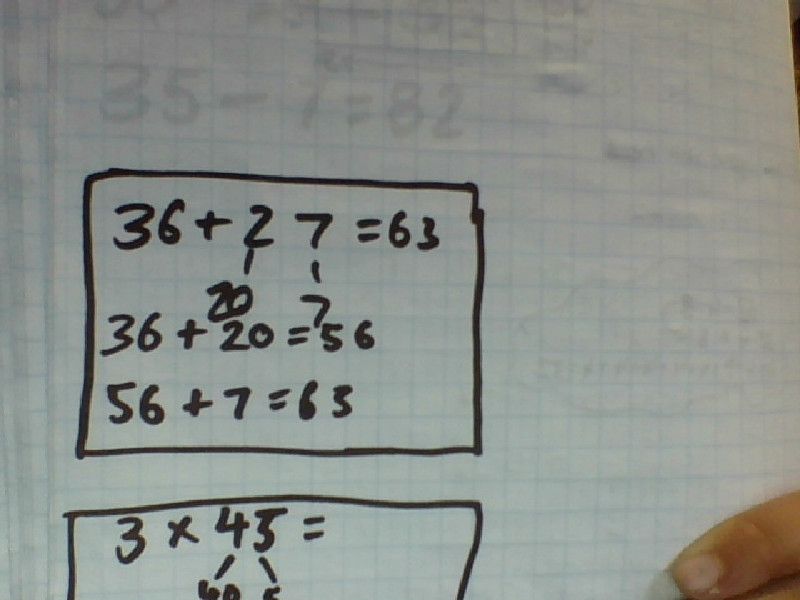 35 - 7 = 82
36 + 27 = 63
20 7
36 + 20 = 56
56 + 7 = 63
3 × 45 =
40 5